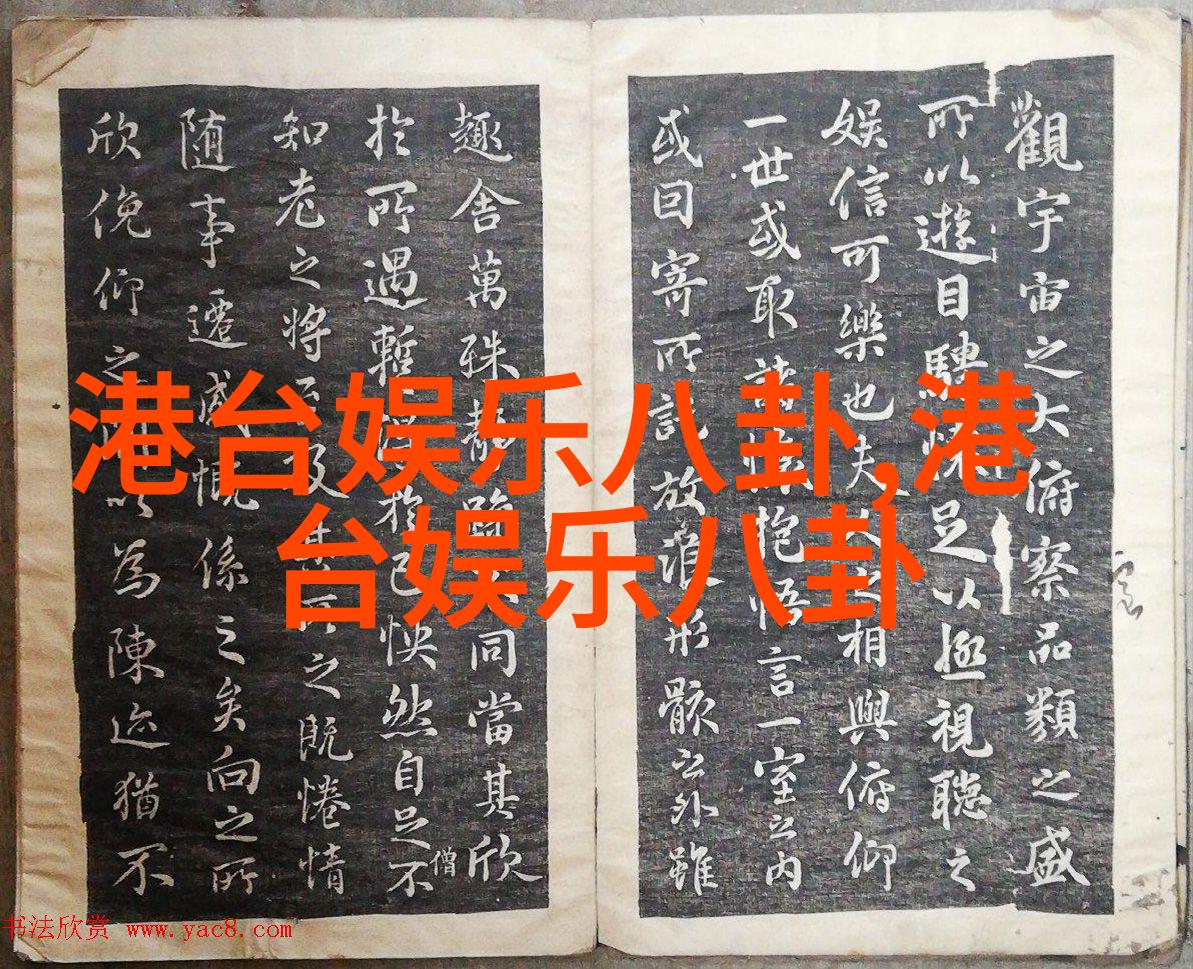 觀宇宙之大俯察品類之盛
所以遊目騁懷足以極視聽之
娛信可樂也夫相與俯仰
一世或取諸懷抱悟言一室之內
或因寄所託放浪形骸之外雖
趣舍萬殊靜躁同當其欣
於所遇暫得於己快然自足不
僧
知老之將至及其所之既惓情
隨事遷感慨係之矣向之所
欣俛仰之以為陳迹猶不
港台娱乐八卦,港
台娱乐八卦
书法欣赏 www.yac8.com